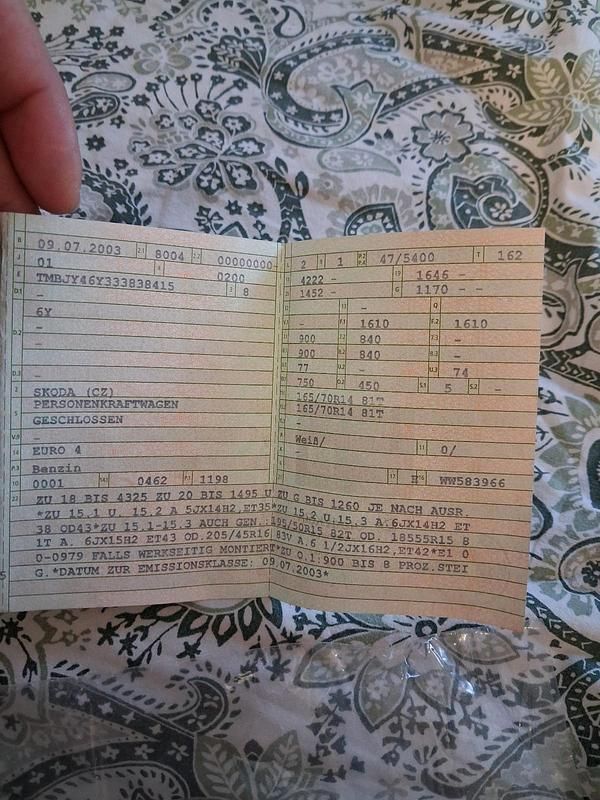 B 09.07.2003 2.1 8004 2.2 00000000-
J 01 4 0200
E TMBJY46Y333838415 3 8
D.1 -
6Y
D.2 -
-
-
D.3 -
2 SKODA (CZ)
5 PERSONENKRAFTWAGEN
GESCHLOSSEN
V.9 -
14 EURO 4
P.3 Benzin
10 0001 14.1 0462 P.1 1198
L 2 9 1 P.2 P.4 47/5400 T 162
18 4222 - 19 1646 -
20 1452 - G 1170 --
12 - 13 - Q -
V.7 - F.1 1610 F.2 1610
7.1 900 7.2 840 7.3 -
8.1 900 8.2 840 8.3 -
U.1 77 U.2 - U.3 74
O.1 750 O.2 450 S.1 5 S.2 -
165/70R14 81T
165/70R14 81T
-
R Weiß/ 11 0/
-
-
17 E 16 WW583966
22 ZU 18 BIS 4325 ZU 20 BIS 1495 U ZU G BIS 1260 JE NACH AUSR.
*ZU 15.1 U. 15.2 A 5JX14H2,ET35*ZU 15.2 U.15.3 A.6JX14H2 ET
38 OD43*ZU 15.1-15.3 AUCH GEN.:195/50R15 82T OD. 18555R15 8
1T A. 6JX15H2 ET43 OD.205/45R16 83V A.6 1/2JX16H2,ET42*E1 0
0-0979 FALLS WERKSEITIG MONTIERT*ZU O.1:900 BIS 8 PROZ.STEI
G.*DATUM ZUR EMISSIONSKLASSE: 09.07.2003*